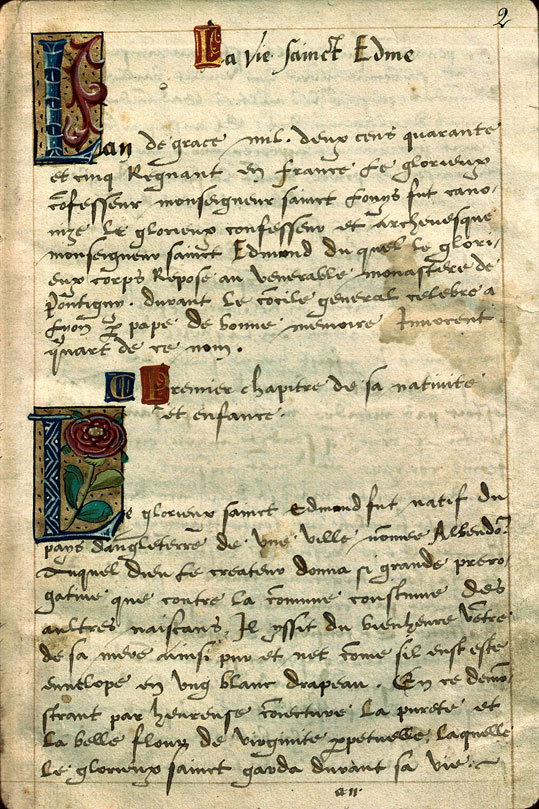 2
La vie sainct Edme
Lan de grace mil. deux cens quarante
et cinq Regnant en france Le glorieux
cōfesseur monseigneur sainct Loüys fut cano-
nize Le glorieux confesseur et archeuesque
monseigneur sainct Edmond du quel le glori-
eux corps Repose au venerable monastere de
Pontigny. durant Le cōcile general celebre a
Lyon ꝑ pape de bonne memoire Innocent
quart de ce nom.
Premier chapitre de sa natiuite
et enfance.
Le glorieux sainct Edmond fut natif du
pays dangleterre de vne ville nōmee Abbendō
Auquel dieu Le createur donna si grande prero-
gatiue que contre La cōmune coustume des
aultres naissans, Il yssit du bienheure vētre
de sa mere ainsi pur et net cōme sil eust este
enuelope en vng blanc drapeau. En ce demō
strant par heureuse cōiecture La purete et
La belle fleur de virginite ꝑpetuelle laquelle
Le glorieux sainct garda durant sa vie.